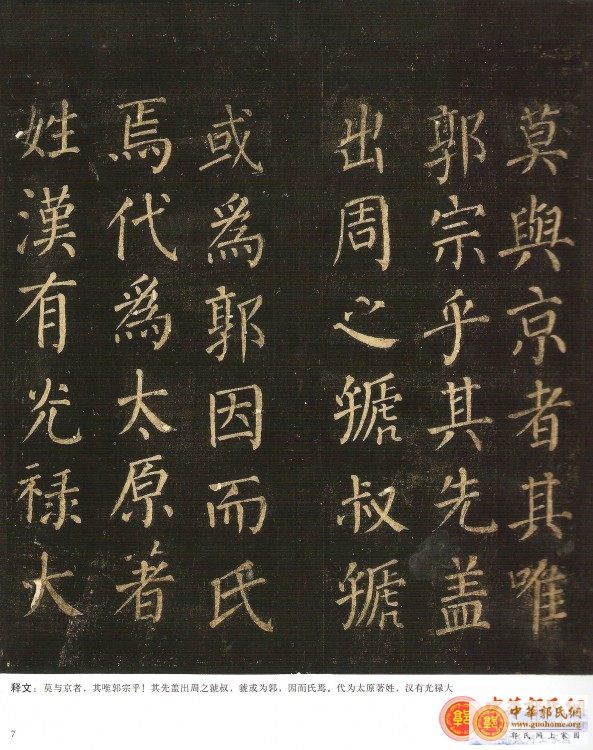 莫與京者其唯
郭宗乎其先盖
出周之虢叔虢
或爲郭因而氏
焉代爲太原著
姓漢有光禄大
释文：莫与京者，其唯郭宗乎！其先盖出周之虢叔，虢或为郭，因而氏焉，代为太原著姓，汉有光禄大
7
中華郭氏網
www.guohome.org
郭氏网上家园